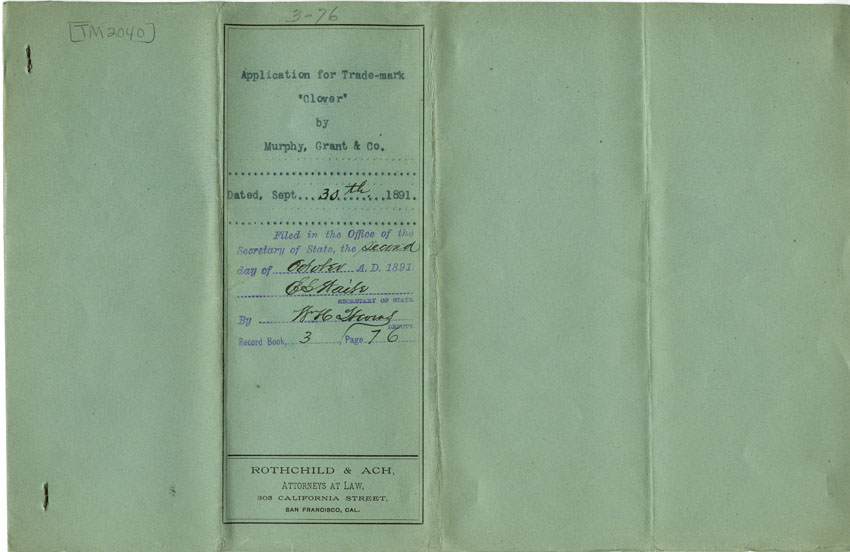 3-76
[TM2040]
Application for Trade-mark
"Clover"
by
Murphy, Grant & Co.
Dated, Sept....30th......1891.
Filed in the Office of the
Secretary of State, the second
day of October A. D. 1891
SECRETARY OF STATE
By W H
DEPUTY
Record Book, 3, Page 76
ROTHCHILD & ACH,
ATTORNEYS AT LAW,
303 CALIFORNIA STREET,
SAN FRANCISCO, CAL.